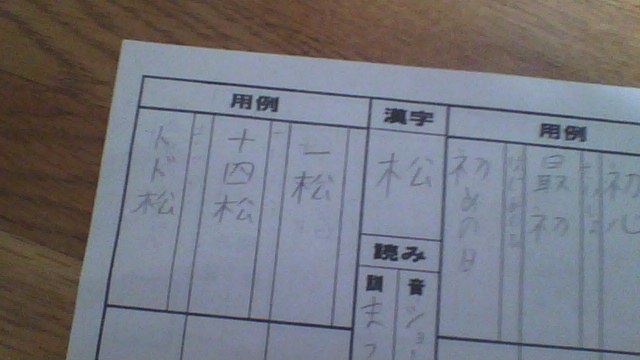 用例
初心
最初
初めの日
漢字
松
読み
音
ショ
訓
まつ
用例
一松
十四松
トド松